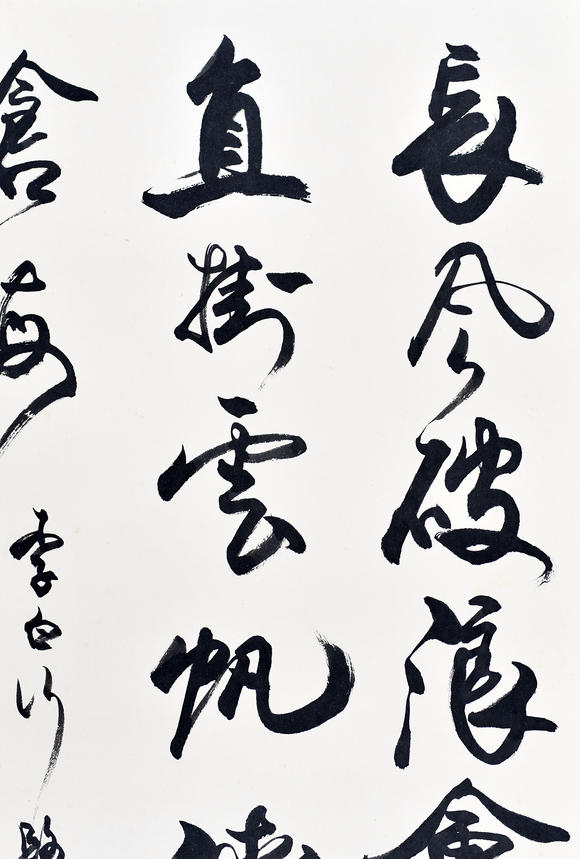 長風破浪會
直掛雲帆濟
滄海
李白行路